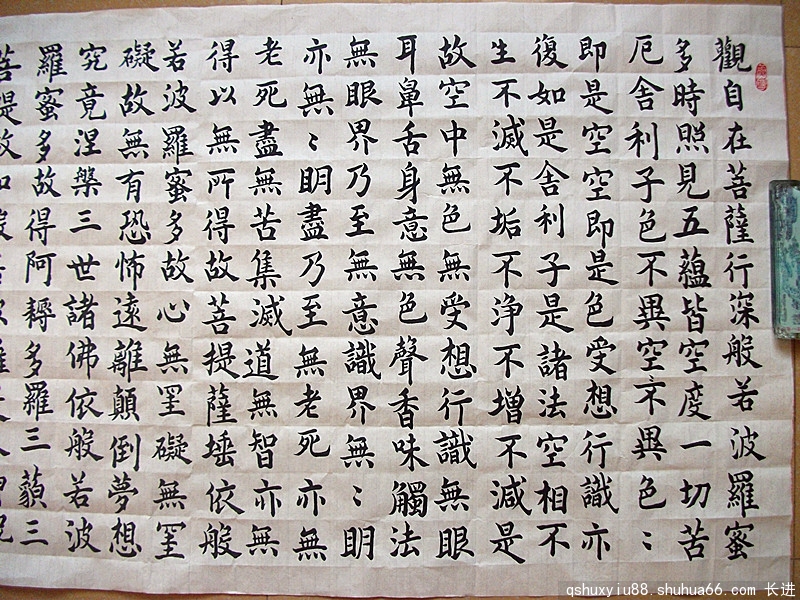 觀自在菩薩行深般若波羅蜜
多時照見五蘊皆空度一切苦
厄舍利子色不異空〻不異色〻
即是空空即是色受想行識亦
復如是舍利子是諸法空相不
生不滅不垢不净不增不減是
故空中無色無受想行識無眼
耳鼻舌身意無色聲香味觸法
無眼界乃至無意識界無〻明
亦無〻明盡乃至無老死亦無
老死盡無苦集滅道無智亦無
得以無所得故菩提薩埵依般
若波羅蜜多故心無罣礙無罣
礙故無有恐怖遠離顛倒夢想
究竟涅槃三世諸佛依般若波
羅蜜多故得阿耨多羅三藐三
菩提故知般
qshuxyiu88.shuhua66.com 长进